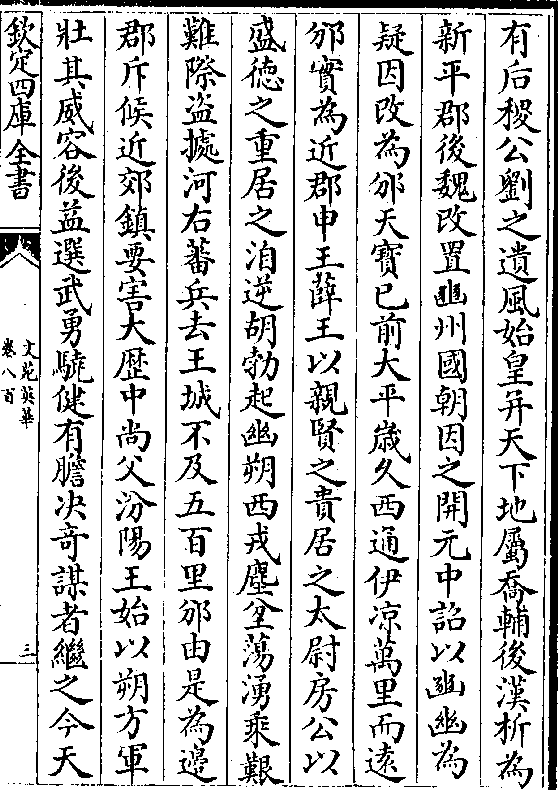 有后稷公劉之遺風始皇并天下地屬喬輔後漢析為
新平郡後魏改置豳州國朝因之開元中詔以豳幽為
疑因改為邠天寶已前大平歲久西通伊凉萬里而遠
邠實為近郡申王薛王以親賢之貴居之太尉房公以
盛德之重居之洎逆胡勃起幽朔西戎塵坌蕩湧乗艱
難際盗據河右蕃兵去王城不及五百里邠由是為邊
郡斥候近郊鎮要害大歴中尚父汾陽王始以朔方軍
壯其威容後益選武勇驍健有膽决竒謀者繼之今天
欽定四庫全書
文苑英華
卷八百
三